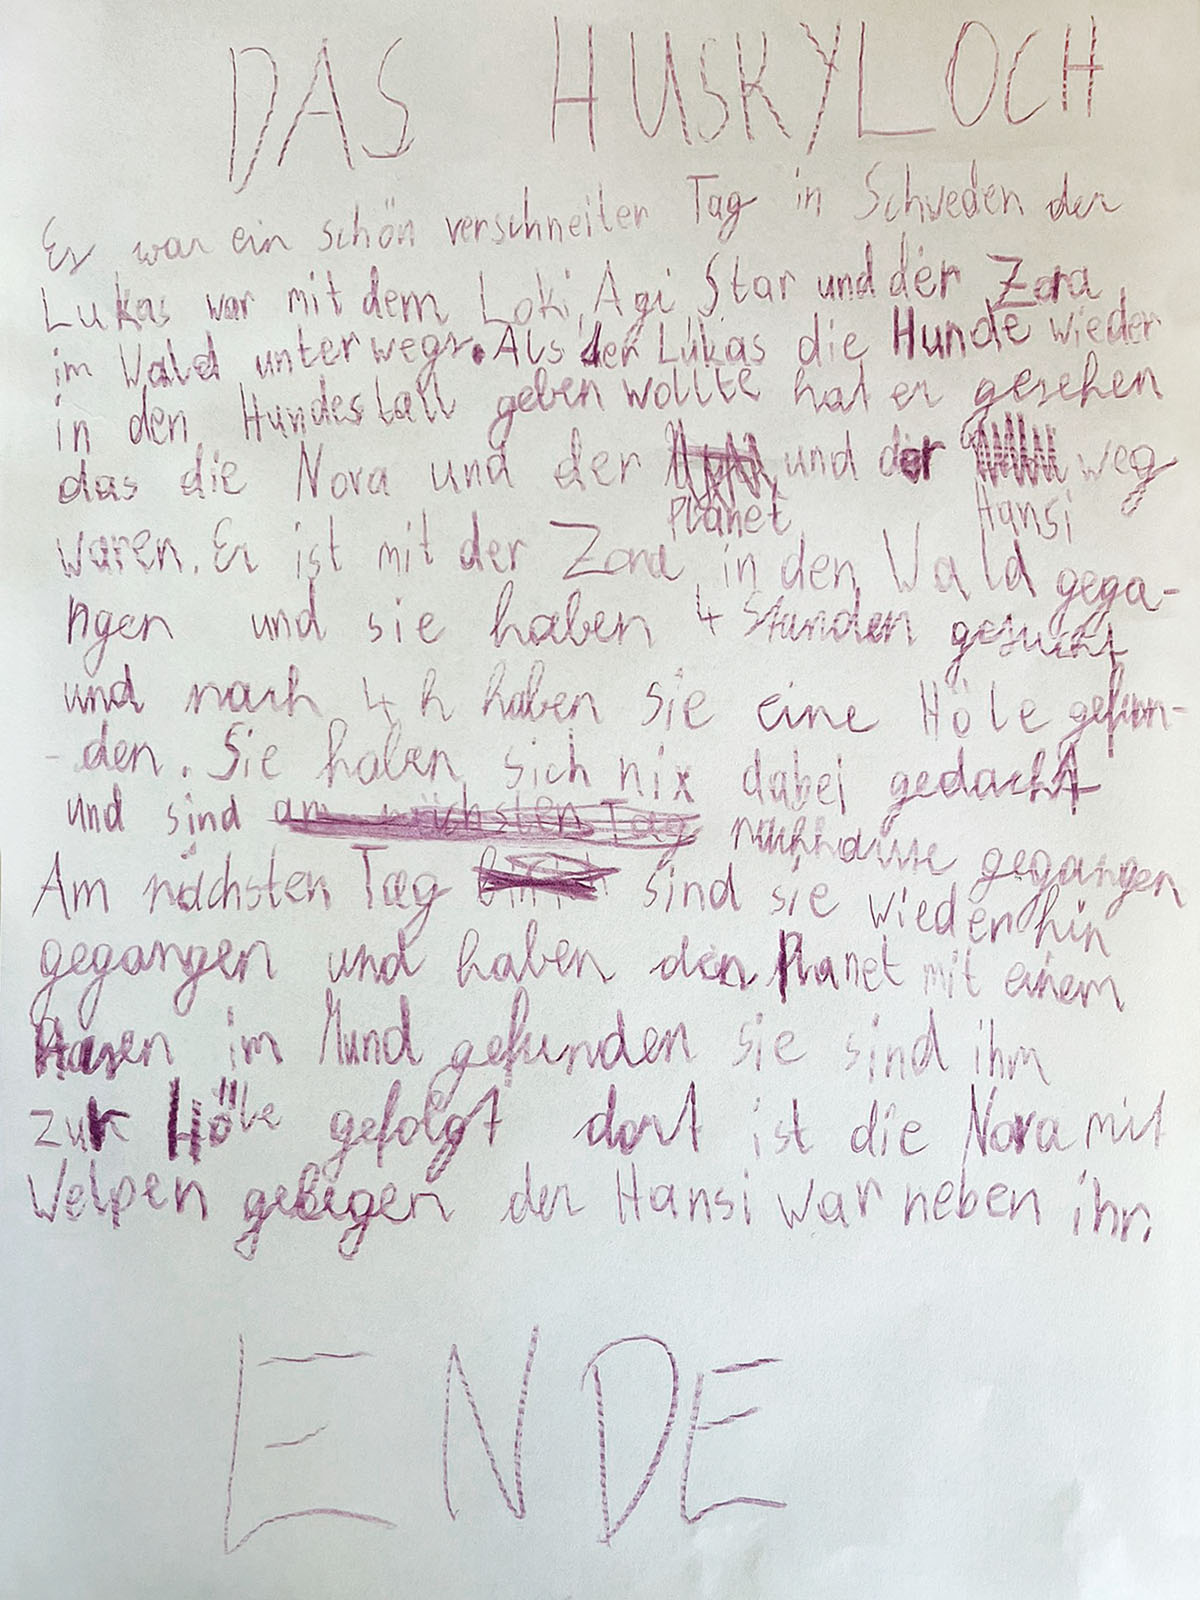 DAS HUSKYLOCH
Es war ein schön verschneiter Tag in Schweden der
Lukas war mit dem Loki, Agi, Star und der Zora
im Wald unterwegs. Als der Lukas die Hunde wieder
in den Hundestall geben wollte hat er gesehen
das die Nora und der und der weg
Planet Hansi
waren. Er ist mit der Zora in den Wald gega-
ngen und sie haben 4 Stunden gesucht
und nach 4 h haben sie eine Höle gefun-
-den. Sie haben sich nix dabei gedacht
und sind am nächsten Tag nachhause gegangen
Am nächsten Tag sind sie wieder hin
gegangen und haben den Planet mit einem
Hasen im Mund gefunden sie sind ihm
zur Höle gefolgt dort ist die Nora mit
Welpen gelegen der Hansi war neben ihr.
ENDE